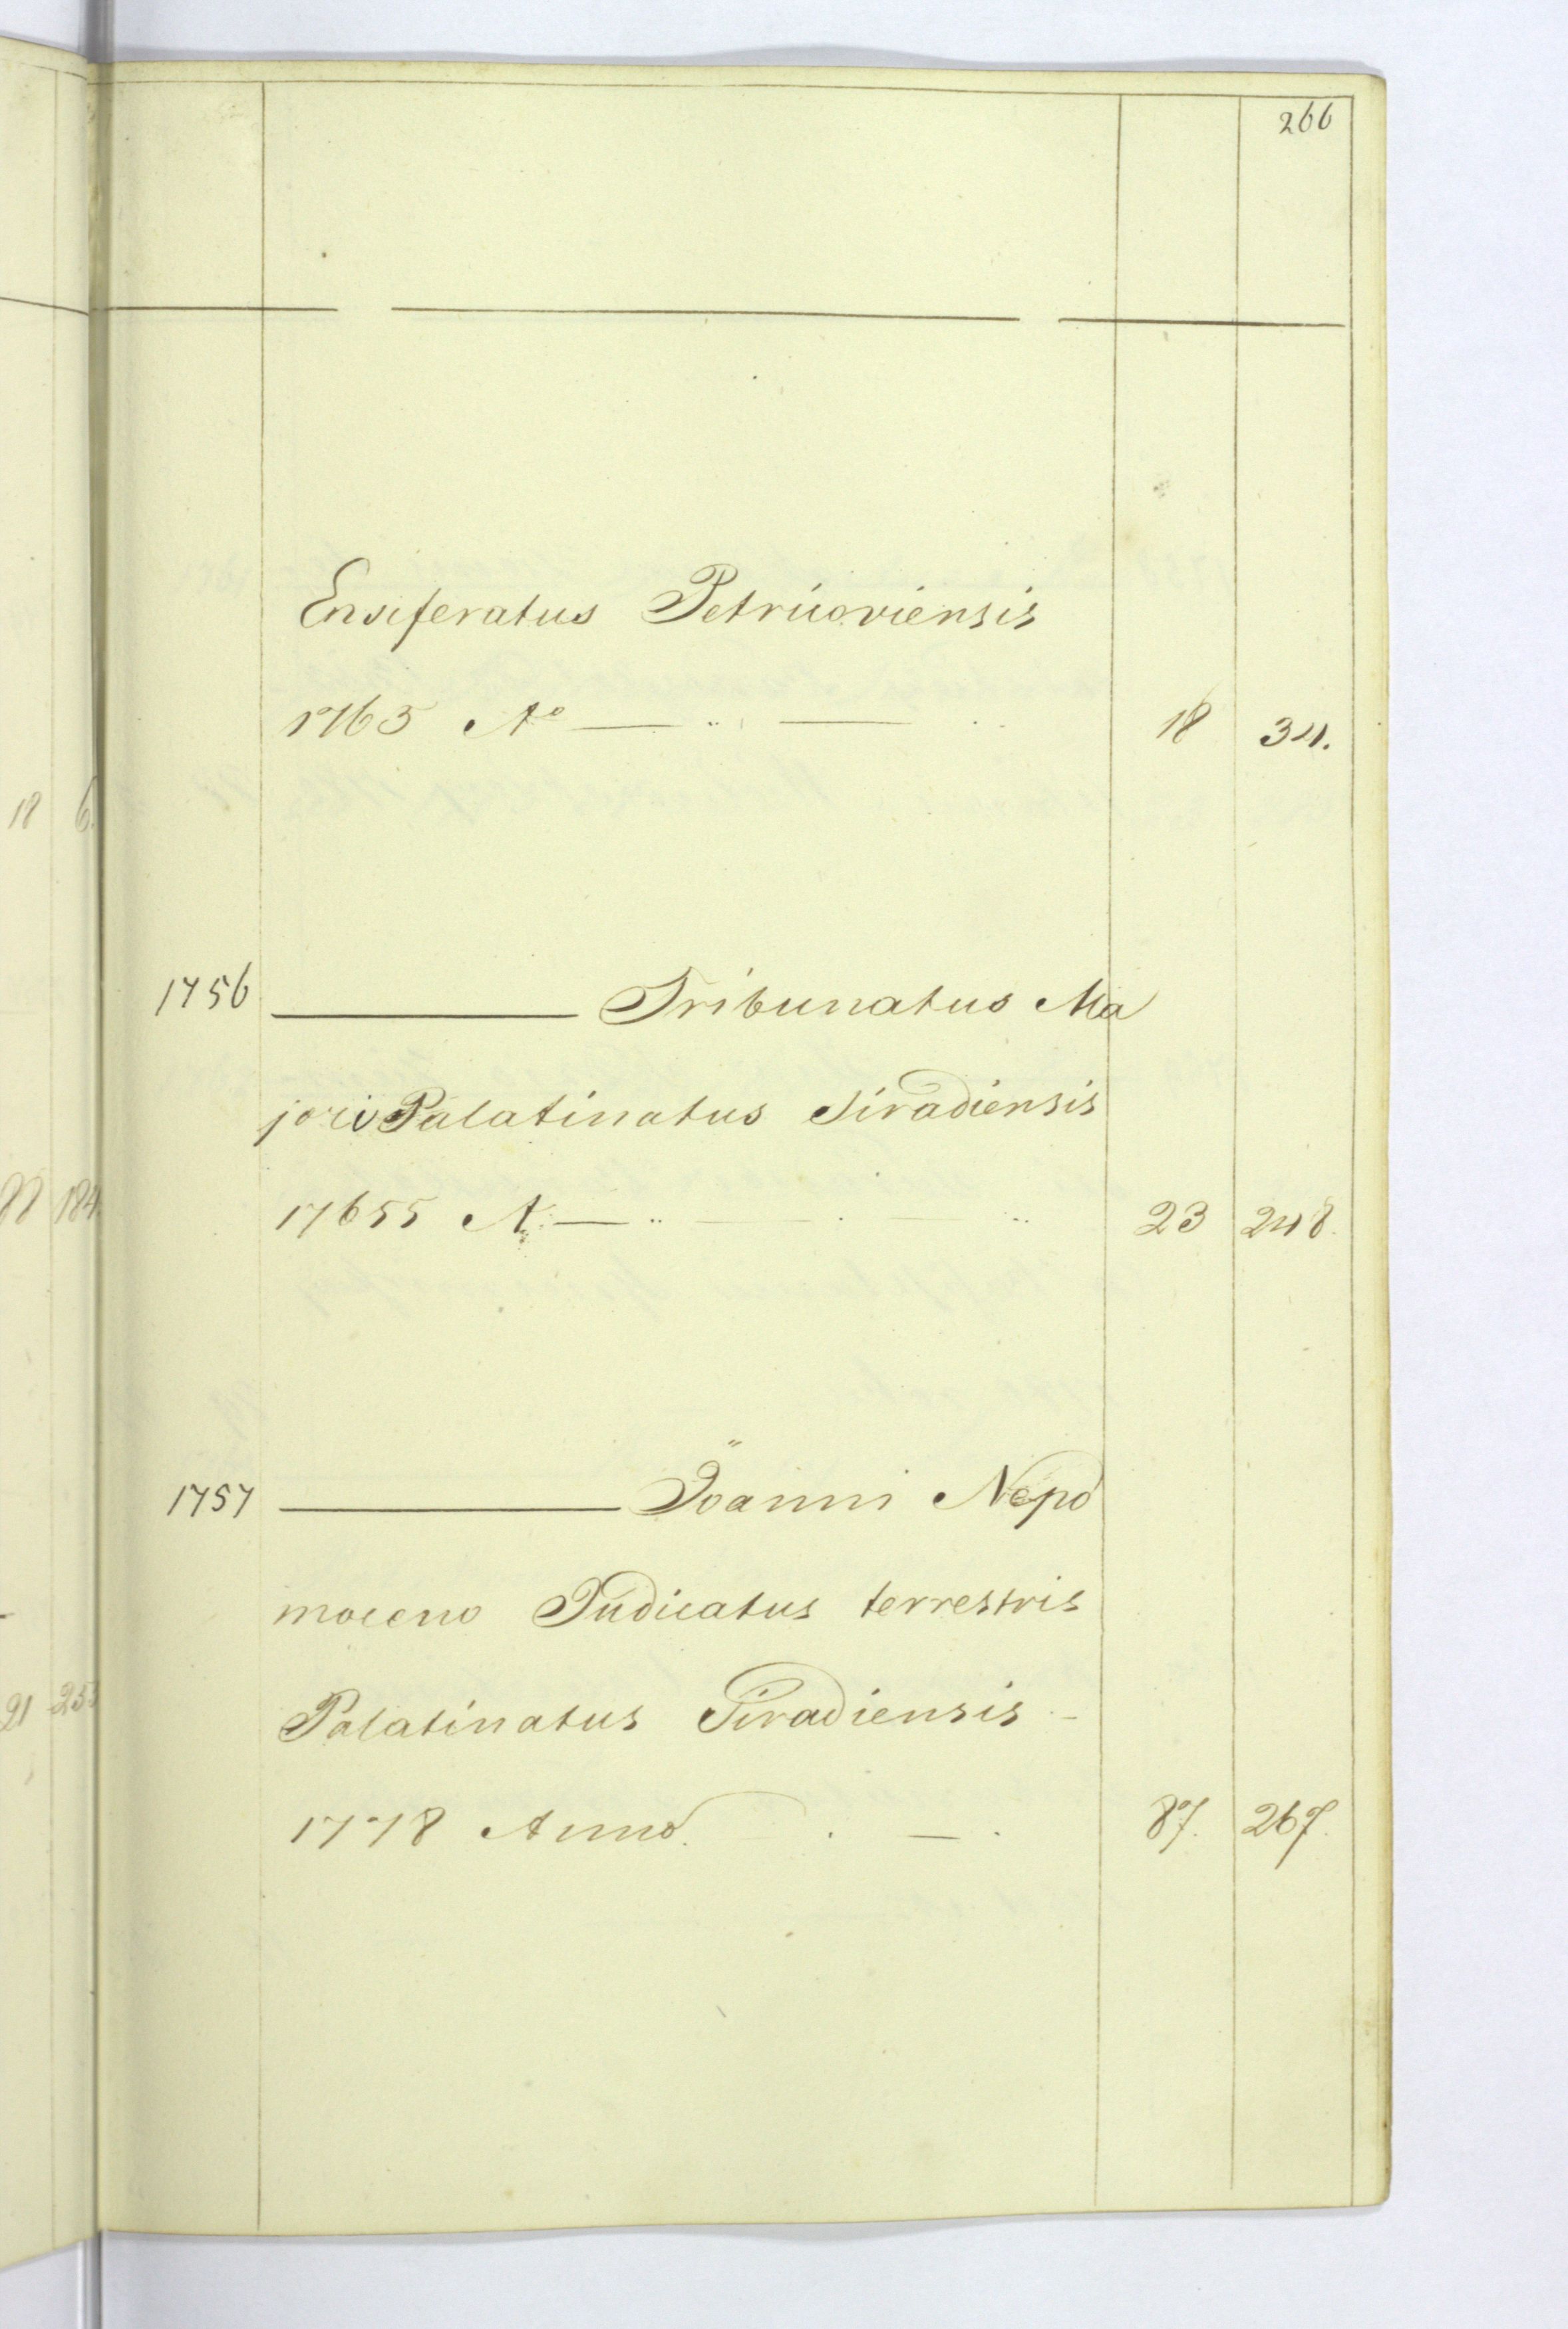 266
Ensiferatus Petricoviensis
1763 Aº — .. — .. 18 34.
1756 — Tribunatus Ma
jori Palatinatus Siradiensis
17655 A: — .. — . — .. 23 248.
1757 — Joanni Nepo
moceno Judicatus terrestris
Palatinatus Siradiensis –
1778 Anno. . — . 87. 267.
18 6.
184
91 253